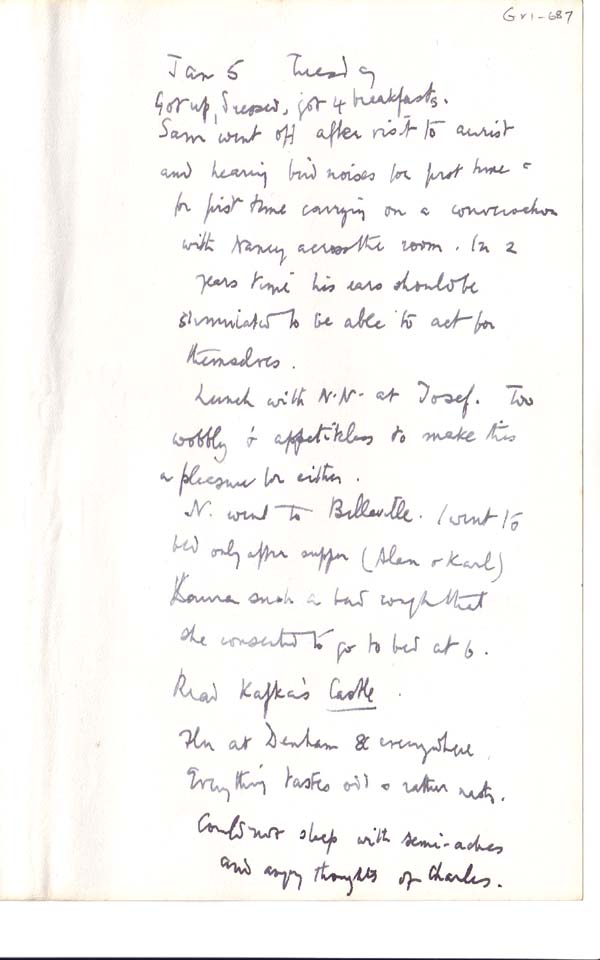 Gr1-687
Jan 5 Tuesday
Got up, dressed, got 4 breakfasts.
Sam went off after visit to aurist
and hearing bird noises for first time &
for first time carrying on a conversation
with Nancy across the room. In 2
years time his ears should be
stimulated to be able to act for
themselves.
Lunch with N.N. at Josef. Too
wobbly & appetitless to make this
a pleasure for either.
N. went to Belleville. I went to
bed only after supper (Alan & Karl)
such a bad cough that
she consented to go to bed at 6.
Read Kafka's Castle.
Flu at Denham & everywhere.
Everything tastes odd & rather nasty.
Could not sleep with semi-aches
and angry thoughts of Charles.